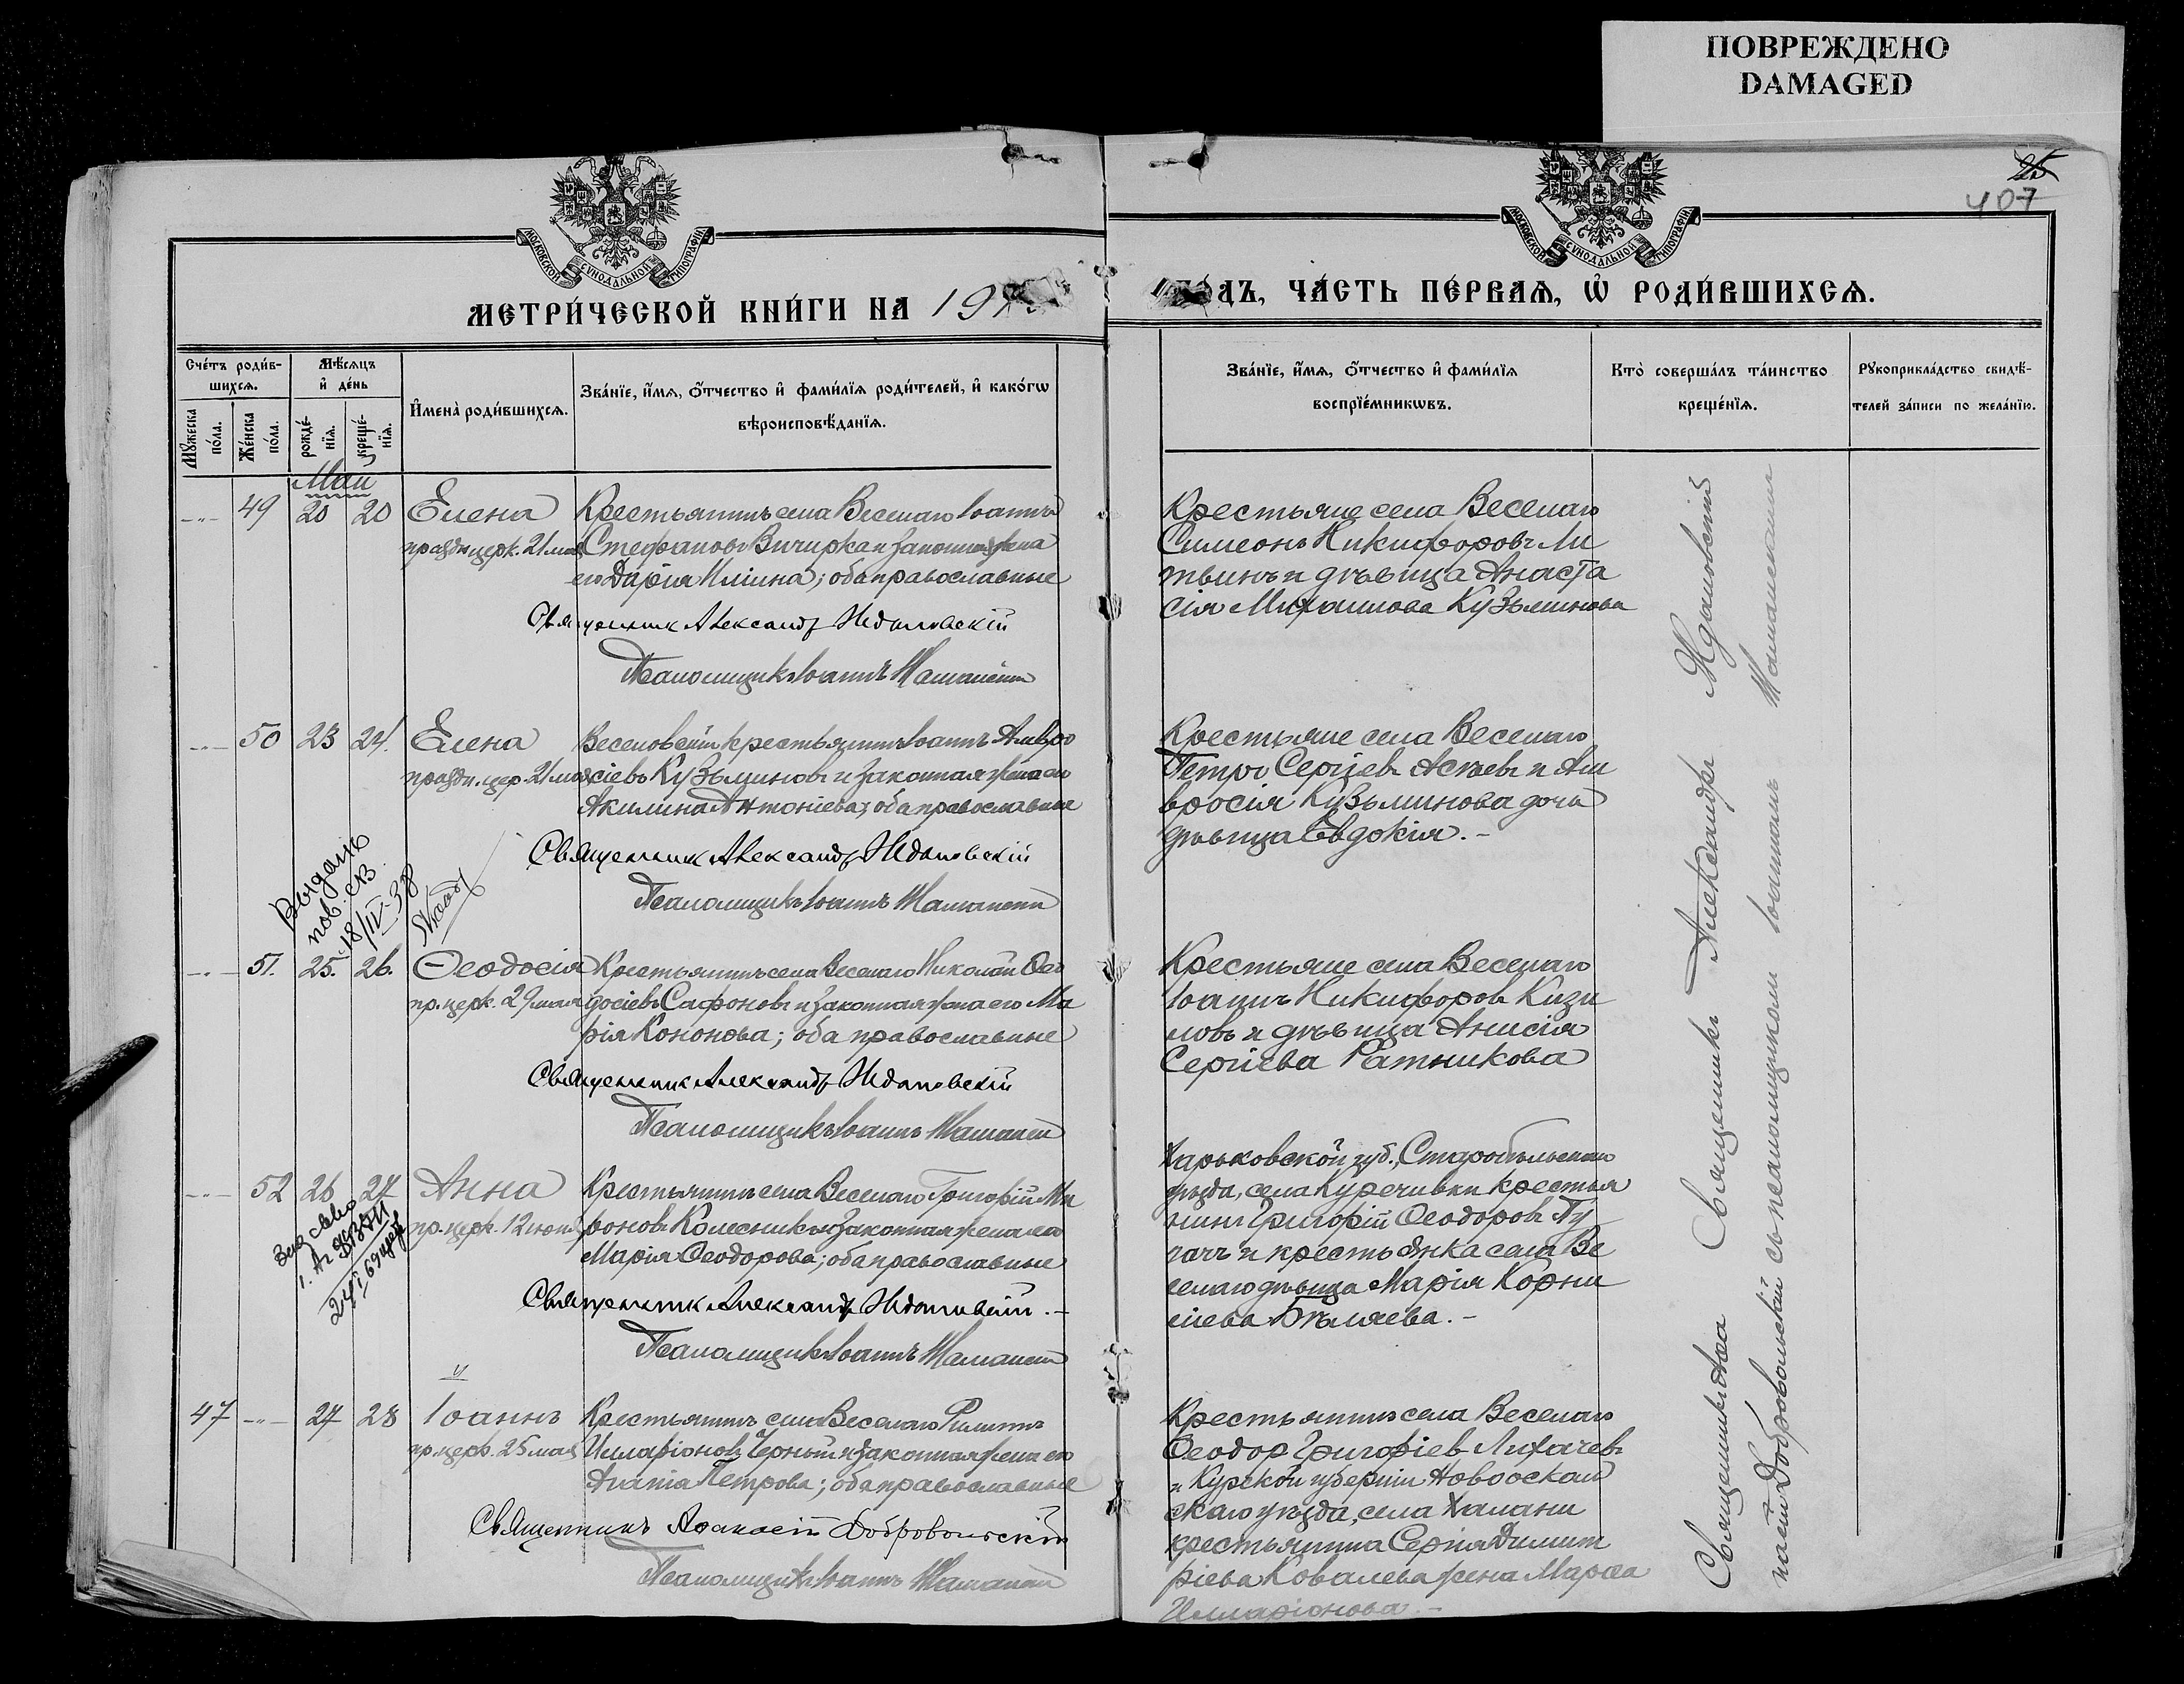 ПОВРЕЖДЕНО
DAMAGED
25
407
МОСКОВСКОЙ СѴНОДАЛЬНОЙ ТИПОГРАФІИ
МОСКОВСКОЙ СѴНОДАЛЬНОЙ ТИПОГРАФІИ
МЕТРИ́ЧЕСКОЙ КНИ́ГИ НА 191
ДЪ, ЧА́СТЬ ПЕ́РВАѦ, Ѡ РОДИ́ВШИХСѦ.
Сче́тъ роди́в-
шихсѧ.
Мꙋжеска по́ла.
Же́нска по́ла.
Мѣ́сѧцъ
и҆ де́нь
рожде́-
нїѧ.
креще́-
нїѧ.
И҆мена̀ роди́вшихсѧ.
Зва́нїе, и҆́мѧ, ѻ҆́тчество и҆ фами́лїѧ роди́телей, и҆ како́гѡ
вѣроисповѣ́данїѧ.
Зва́нїе, и҆́мѧ, ѻ҆́тчество и҆ фами́лїѧ
воспрїе́мникѡвъ.
Кто̀ соверша́лъ та́инство
креще́нїѧ.
Рꙋкоприкла́дство свидѣ́-
телей за́писи по жела́нїю.
Май
49 20 20 Елена
праздн. церк. 21 мая
Крестьянинъ села Веселаго Іоаннъ
Стефановъ Вичирка и законная жена
его Дарія Иліина; оба православные
Священникъ Александръ Ждановскій
Псаломщикъ Іоаннъ
Крестьяне села Веселаго
Симеонъ Никифоровъ Ли
твинъ и дѣвица Анаста
сія Михаилова Кузьминова
50 23 24. Елена
праздн. цер. 21 мая
Веселовскій крестьянинъ Іоаннъ Амвро
сіевъ Кузьминовъ и законная жена его
Акилина Антоніева; оба православные
Священникъ Александръ Ждановскій
Псаломщикъ Іоаннъ
Крестьяне села Веселаго
Петръ Сергіевъ Асѣевъ и Ам
вросія Кузьминова дочь
дѣвица Евдокія. -
Выдано
пов. св.
18/IV-38
51. 25. 26. Ѳеодосія
пр. церк. 29 мая
Крестьянинъ села Веселаго Николай Ѳео
досіевъ Сафоновъ и законная жена его Ма
рія Кононова; оба православные
Священникъ Александръ Ждановскій
Псаломщикъ Іоаннъ
Крестьяне села Веселаго
Іоаннъ Никифоровъ Кизи
ловъ и дѣвица Анисія
Сергіева Ратникова
52 26 27 Анна
пр. церк. 12 іюня
Крестьянинъ села Веселаго Григорій Ми
роновъ Колесникъ и законная жена его
Марія Ѳеодорова; оба православные
Священникъ Александръ Ждановскій. -
Псаломщикъ Іоаннъ
Харьковской губ., Старобѣльскаго
уѣзда, села Куречивки крестья
нинъ Григорій Ѳеодоровъ Пу
гачъ и крестьянка села Ве
селаго дѣвица Марія Корни
ліева Бѣляева. -
47 27 28 Іоаннъ
пр. церк. 25 мая
Крестьянинъ села Веселаго Филиппъ
Илларіоновъ Черный и законная жена его
Агапія Петрова; оба православные
Священникъ Аѳанасій Добровольскій
Псаломщикъ Іоаннъ
Крестьянинъ села Веселаго
Ѳеодоръ Григорьевъ Лихачевъ
и Курской губерніи Новооскол
скаго уѣзда, села Халани
крестьянина Сергія Димит
ріева Ковалева жена Марѳа
Илларіонова. -
Священникъ Александръ Ждановскій
Священникъ Аѳа
насій Добровольскій съ псаломщикомъ Іоанномъ